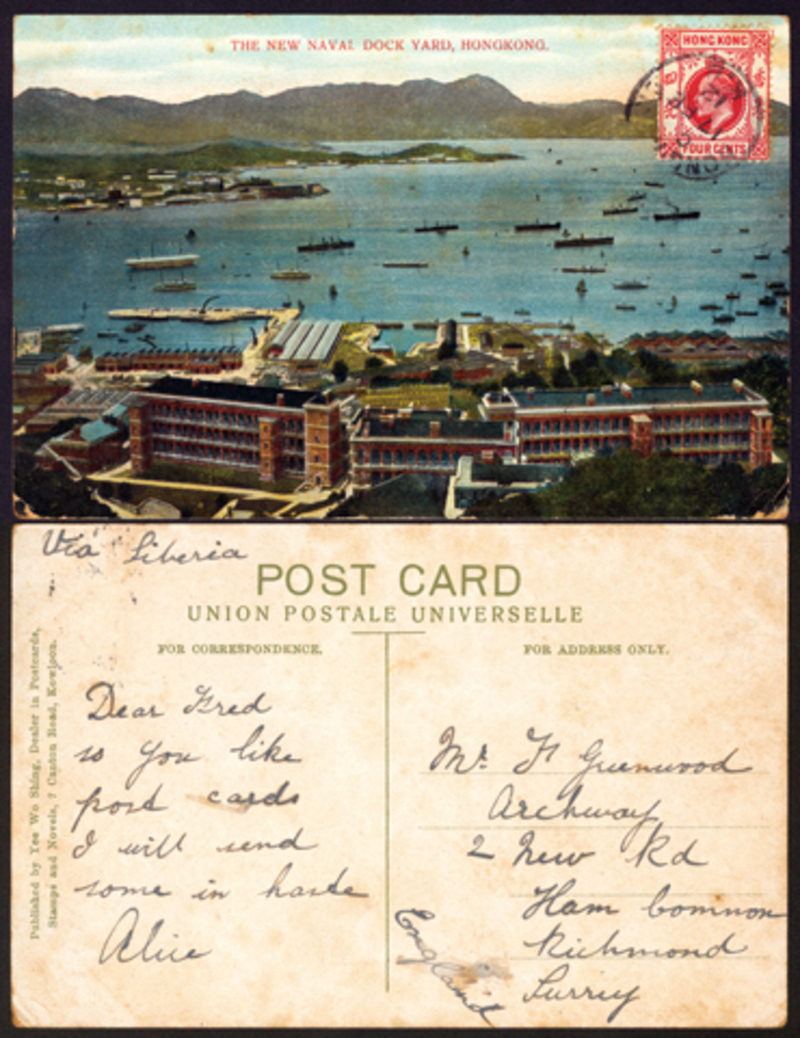 THE NEW NAVAL DOCK YARD, HONGKONG.
HONG KONG
FOUR CENTS
Via Siberia
POST CARD
UNION POSTALE UNIVERSELLE
FOR CORRESPONDENCE.
FOR ADDRESS ONLY.
Published by Yee Wo Shing, Dealer in Postcards,
Stamps and Novels, 7 Canton Road, Kowloon.
Dear Fred
so you like
post cards
I will send
some in haste
Alice
Mr. F Greenwood
Archway
2 New Rd
Ham Common
Richmond
Surrey
England